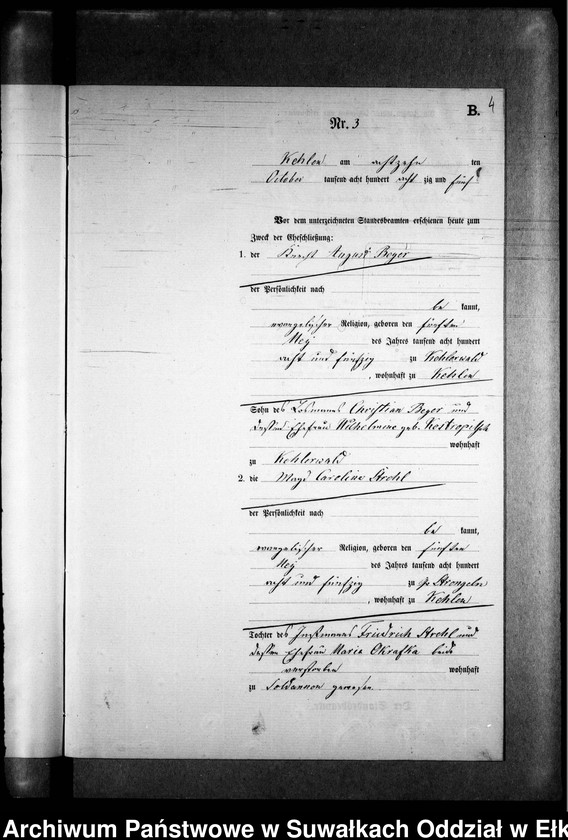 B. 4
Nr. 3
Kehlen am achtzehn ten
October tausend acht hundert acht zig und fünf
Vor dem unterzeichneten Standesbeamten erschienen heute zum
Zweck der Eheschließung:
1. der Knecht August Beyer
der Persönlichkeit nach
be kannt,
evangelischer Religion, geboren den fünften
May des Jahres tausend acht hundert
acht und fünfzig zu Kehlerwald
, wohnhaft zu Kehlen
Sohn des Losmanns Christian Beyer und
dessen Ehefrau Wilhelmine geb.
wohnhaft
zu Kehlerwald
2. die Magd Caroline Strehl
der Persönlichkeit nach
be kannt,
evangelischer Religion, geboren den fünften
May des Jahres tausend acht hundert
acht und fünfzig zu Gr Strengeln
, wohnhaft zu Kehlen
Tochter des Instmanns Friedrich Strehl und
dessen Ehefrau Maria Okrafka beide
verstorben wohnhaft
zu Soldahnen gewesen
Archiwum Państwowe w Suwałkach Oddział w Ełk